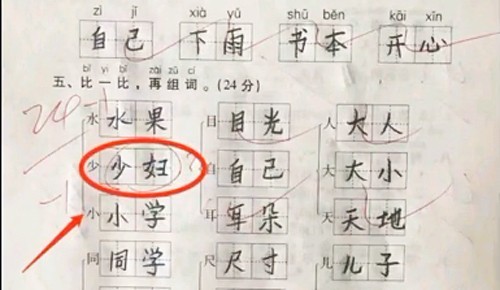 zì jǐ xià yǔ shū běn kāi xīn
自己 下雨 书本 开心
bǐ yi bǐ zài zǔ cí
五、比一比,再组词。(24分)
24-1
水 水果 目 目光 人 大人
少 少妇 自 自己 大 大小
-1
小 小学 耳 耳朵 天 天地
同 同学 尺 尺寸 儿 儿子